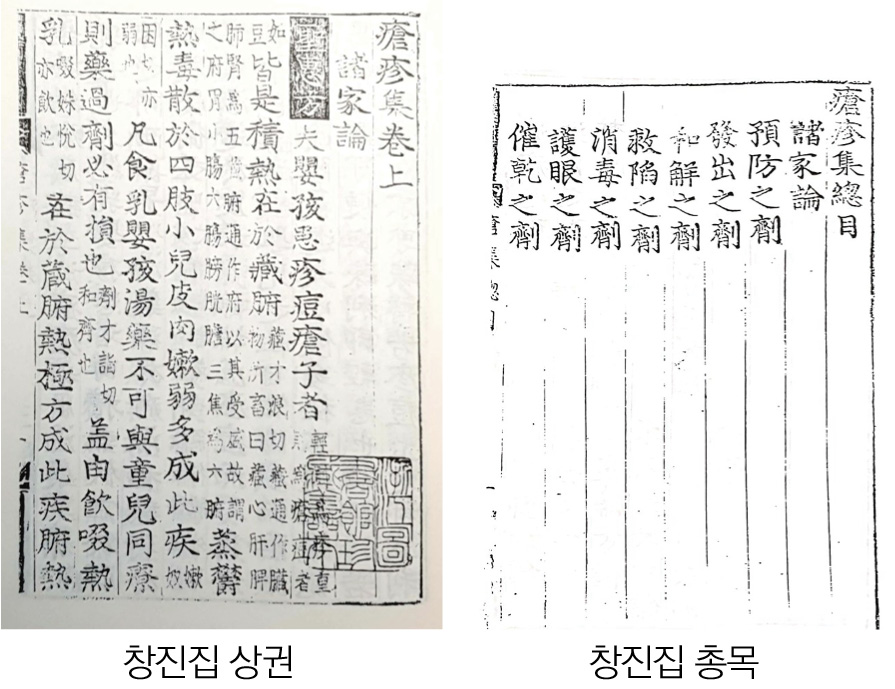 瘡疹集卷上
諸家論
聖惠方 夫嬰孩患疹痘瘡子者
如豆 皆是積熱在於藏腑 藏才浪切藏通作臟物所畜曰藏心肝脾
肺腎爲五藏腑通作府以其受盛故謂之府胃小腸大腸膀胱膽三焦爲六腑 蒸欝
熱毒散於四肢小兒皮肉嫰弱多成此疾 嫰奴
困切亦弱也 凡食乳嬰孩湯藥不可與童兒同療
則藥過劑必有損也 劑才詣切和齊也 盖由飮啜熱
乳 啜姝悅切亦飮也 在於藏腑熱極方成此疾腑熱
瘡疹集卷上
浙江圖
書館珍
창진집 상권
瘡疹集總目
諸家論
預防之劑
發出之劑
和解之劑
救陷之劑
消毒之劑
護眼之劑
催乾之劑
창진집 총목